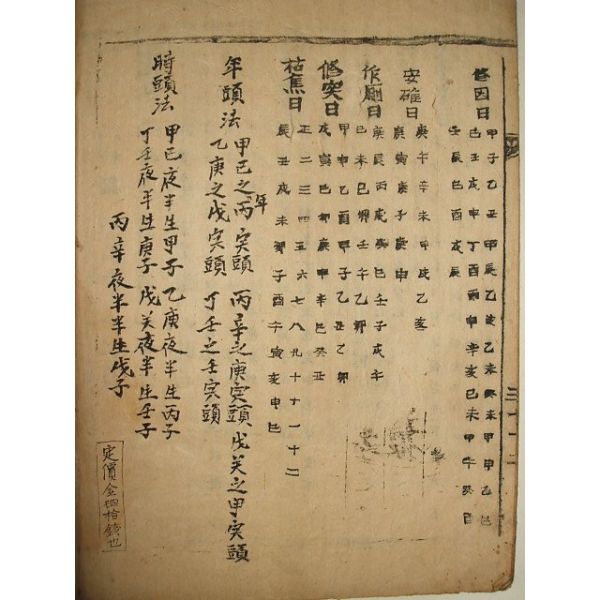 修因日
甲子乙丑甲辰乙亥乙未癸未甲申乙巳
辛亥巳未甲午癸酉
壬辰巳酉戌辰
安碓日
庚午辛未甲戌乙亥
庚寅庚子庚申
作厠日
庚辰丙戌癸巳壬子戌午
巳未巳卯壬午乙卯
修突日
甲申乙酉甲子乙丑乙卯
戌寅巳卯庚申辛巳癸丑
枯焦日
正二三四五六七八九十十一十二
辰丑戌未卯子酉午寅亥申巳
年頭法
甲己之年丙寅頭 丙辛之庚寅頭 戊癸之甲寅頭
乙庚之戊寅頭 丁壬之壬寅頭
時頭法
甲己夜半生甲子 乙庚夜半生丙子
丁壬夜半生庚子 戊癸夜半生壬子
丙辛夜半生戊子
定價金四拾錢也